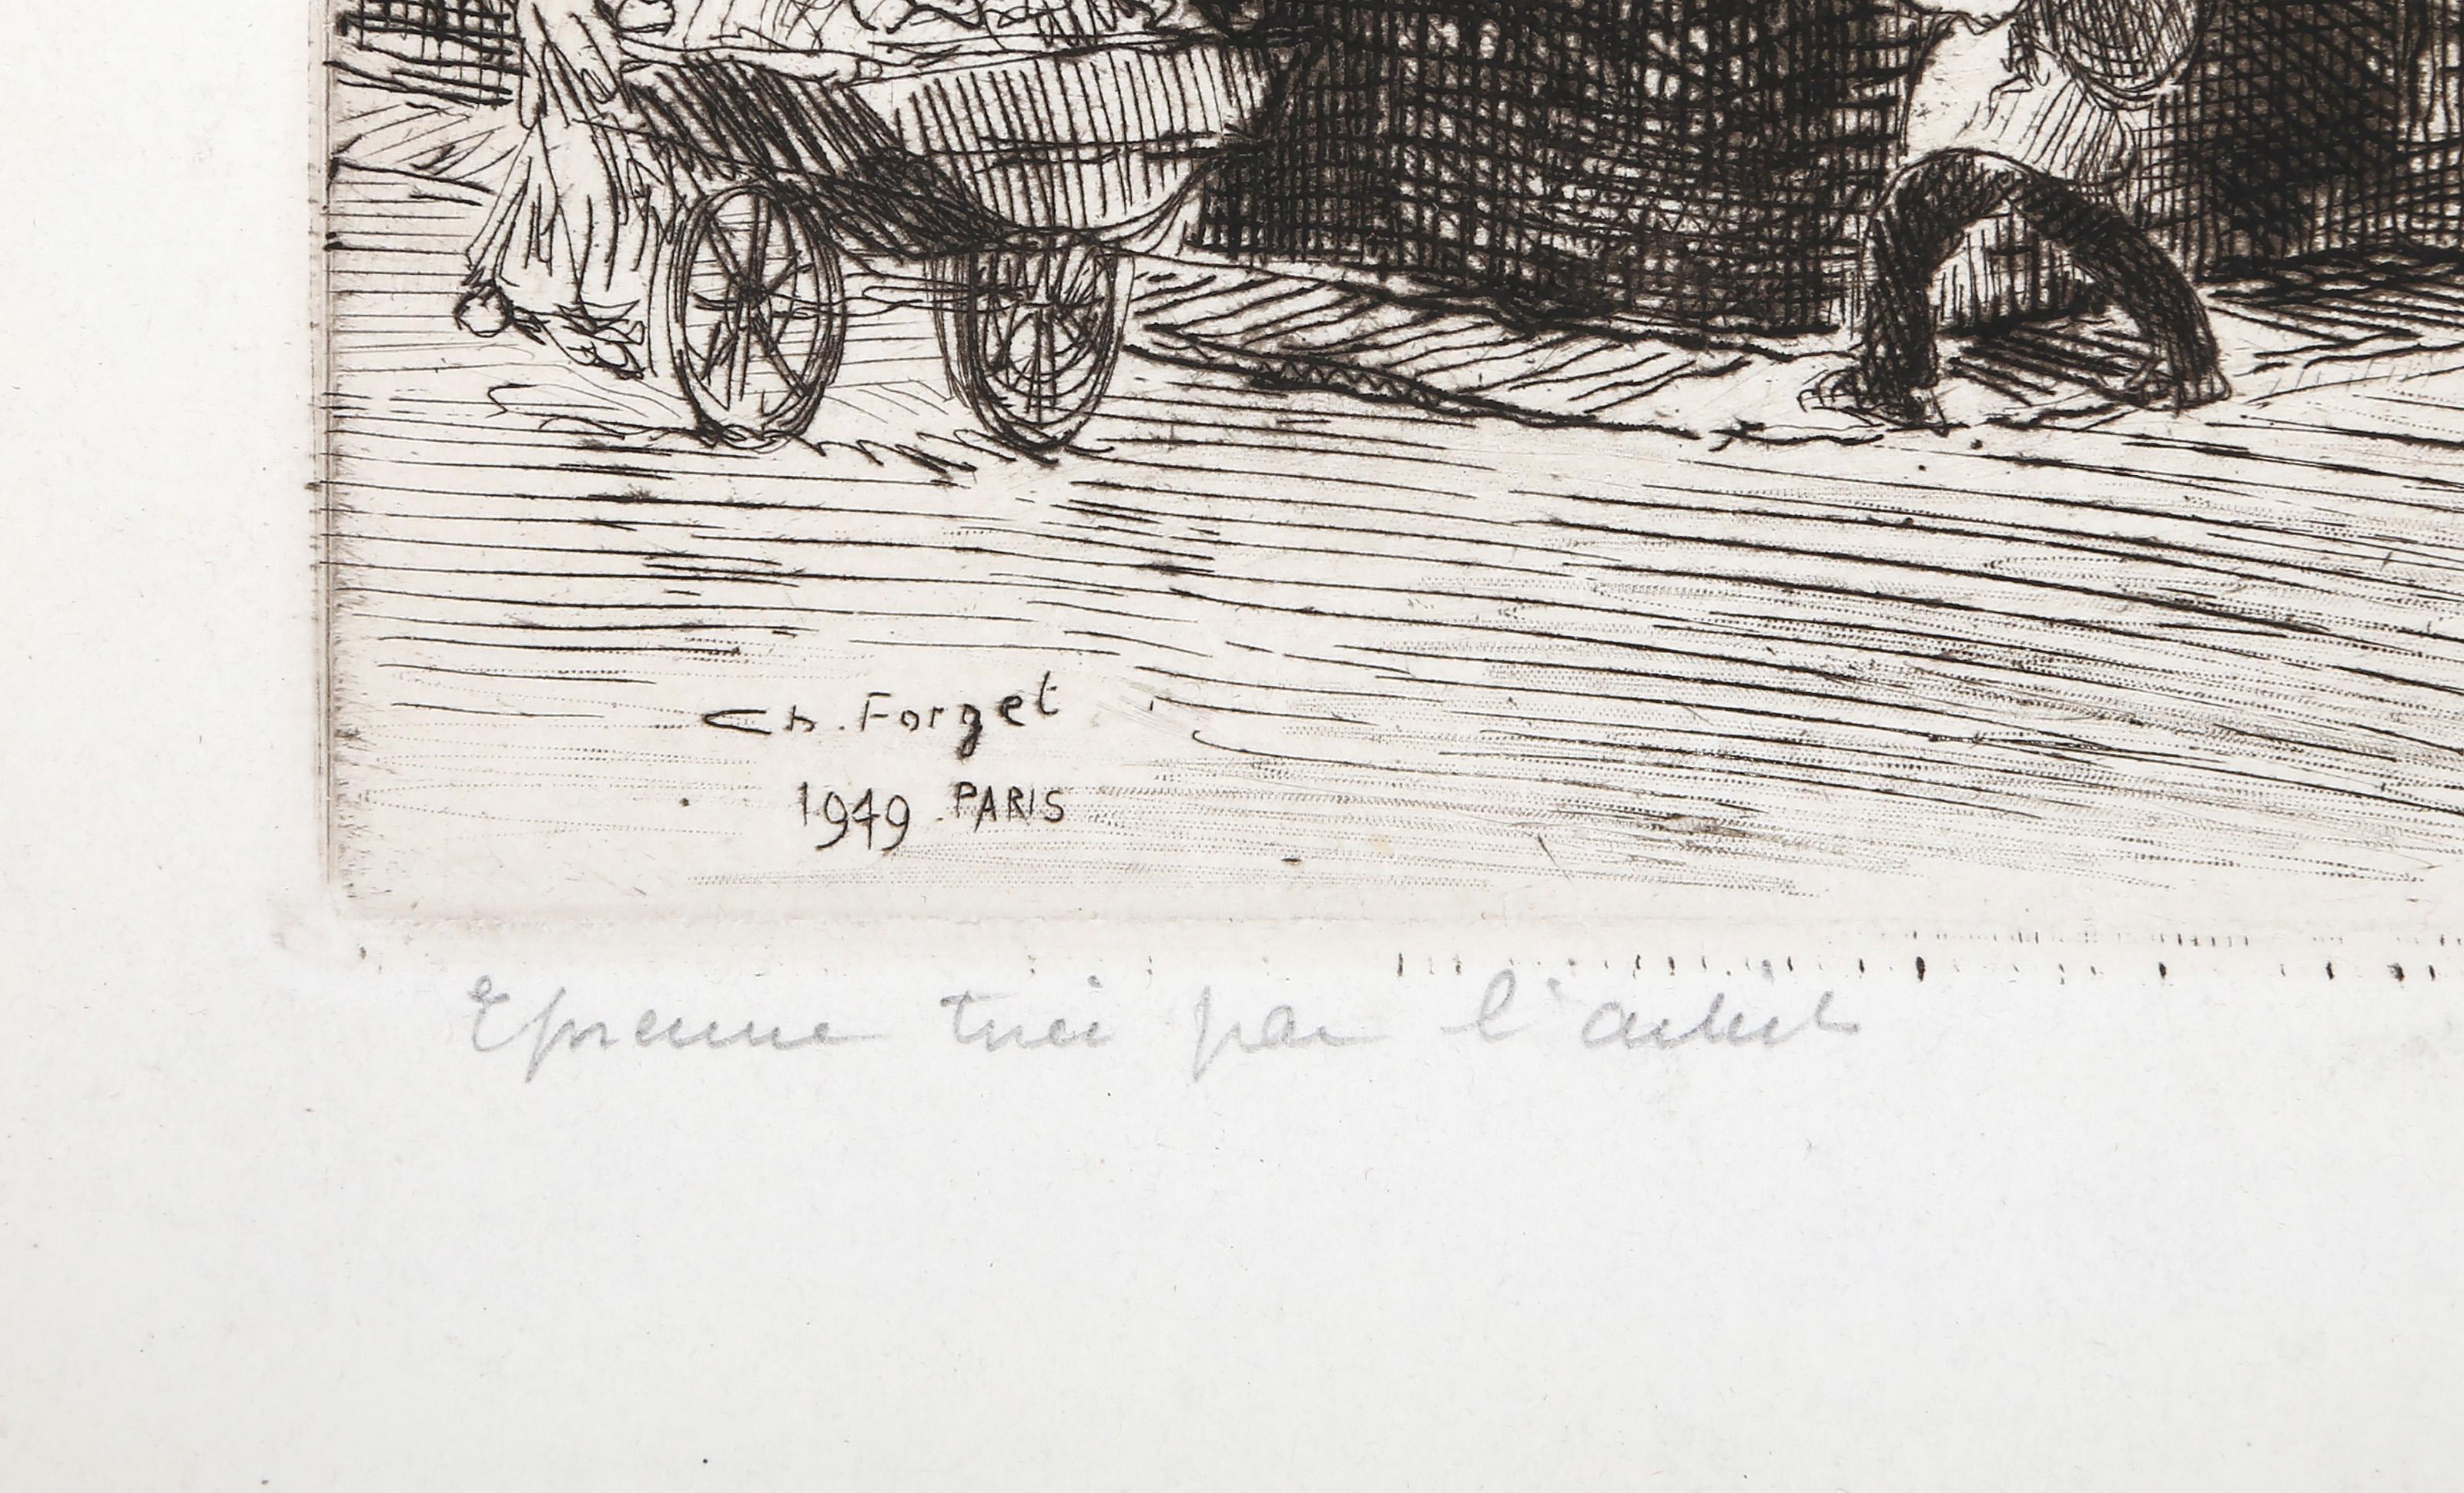 Ch. Forget
1949. PARIS
Epreuve tirée par l'artiste